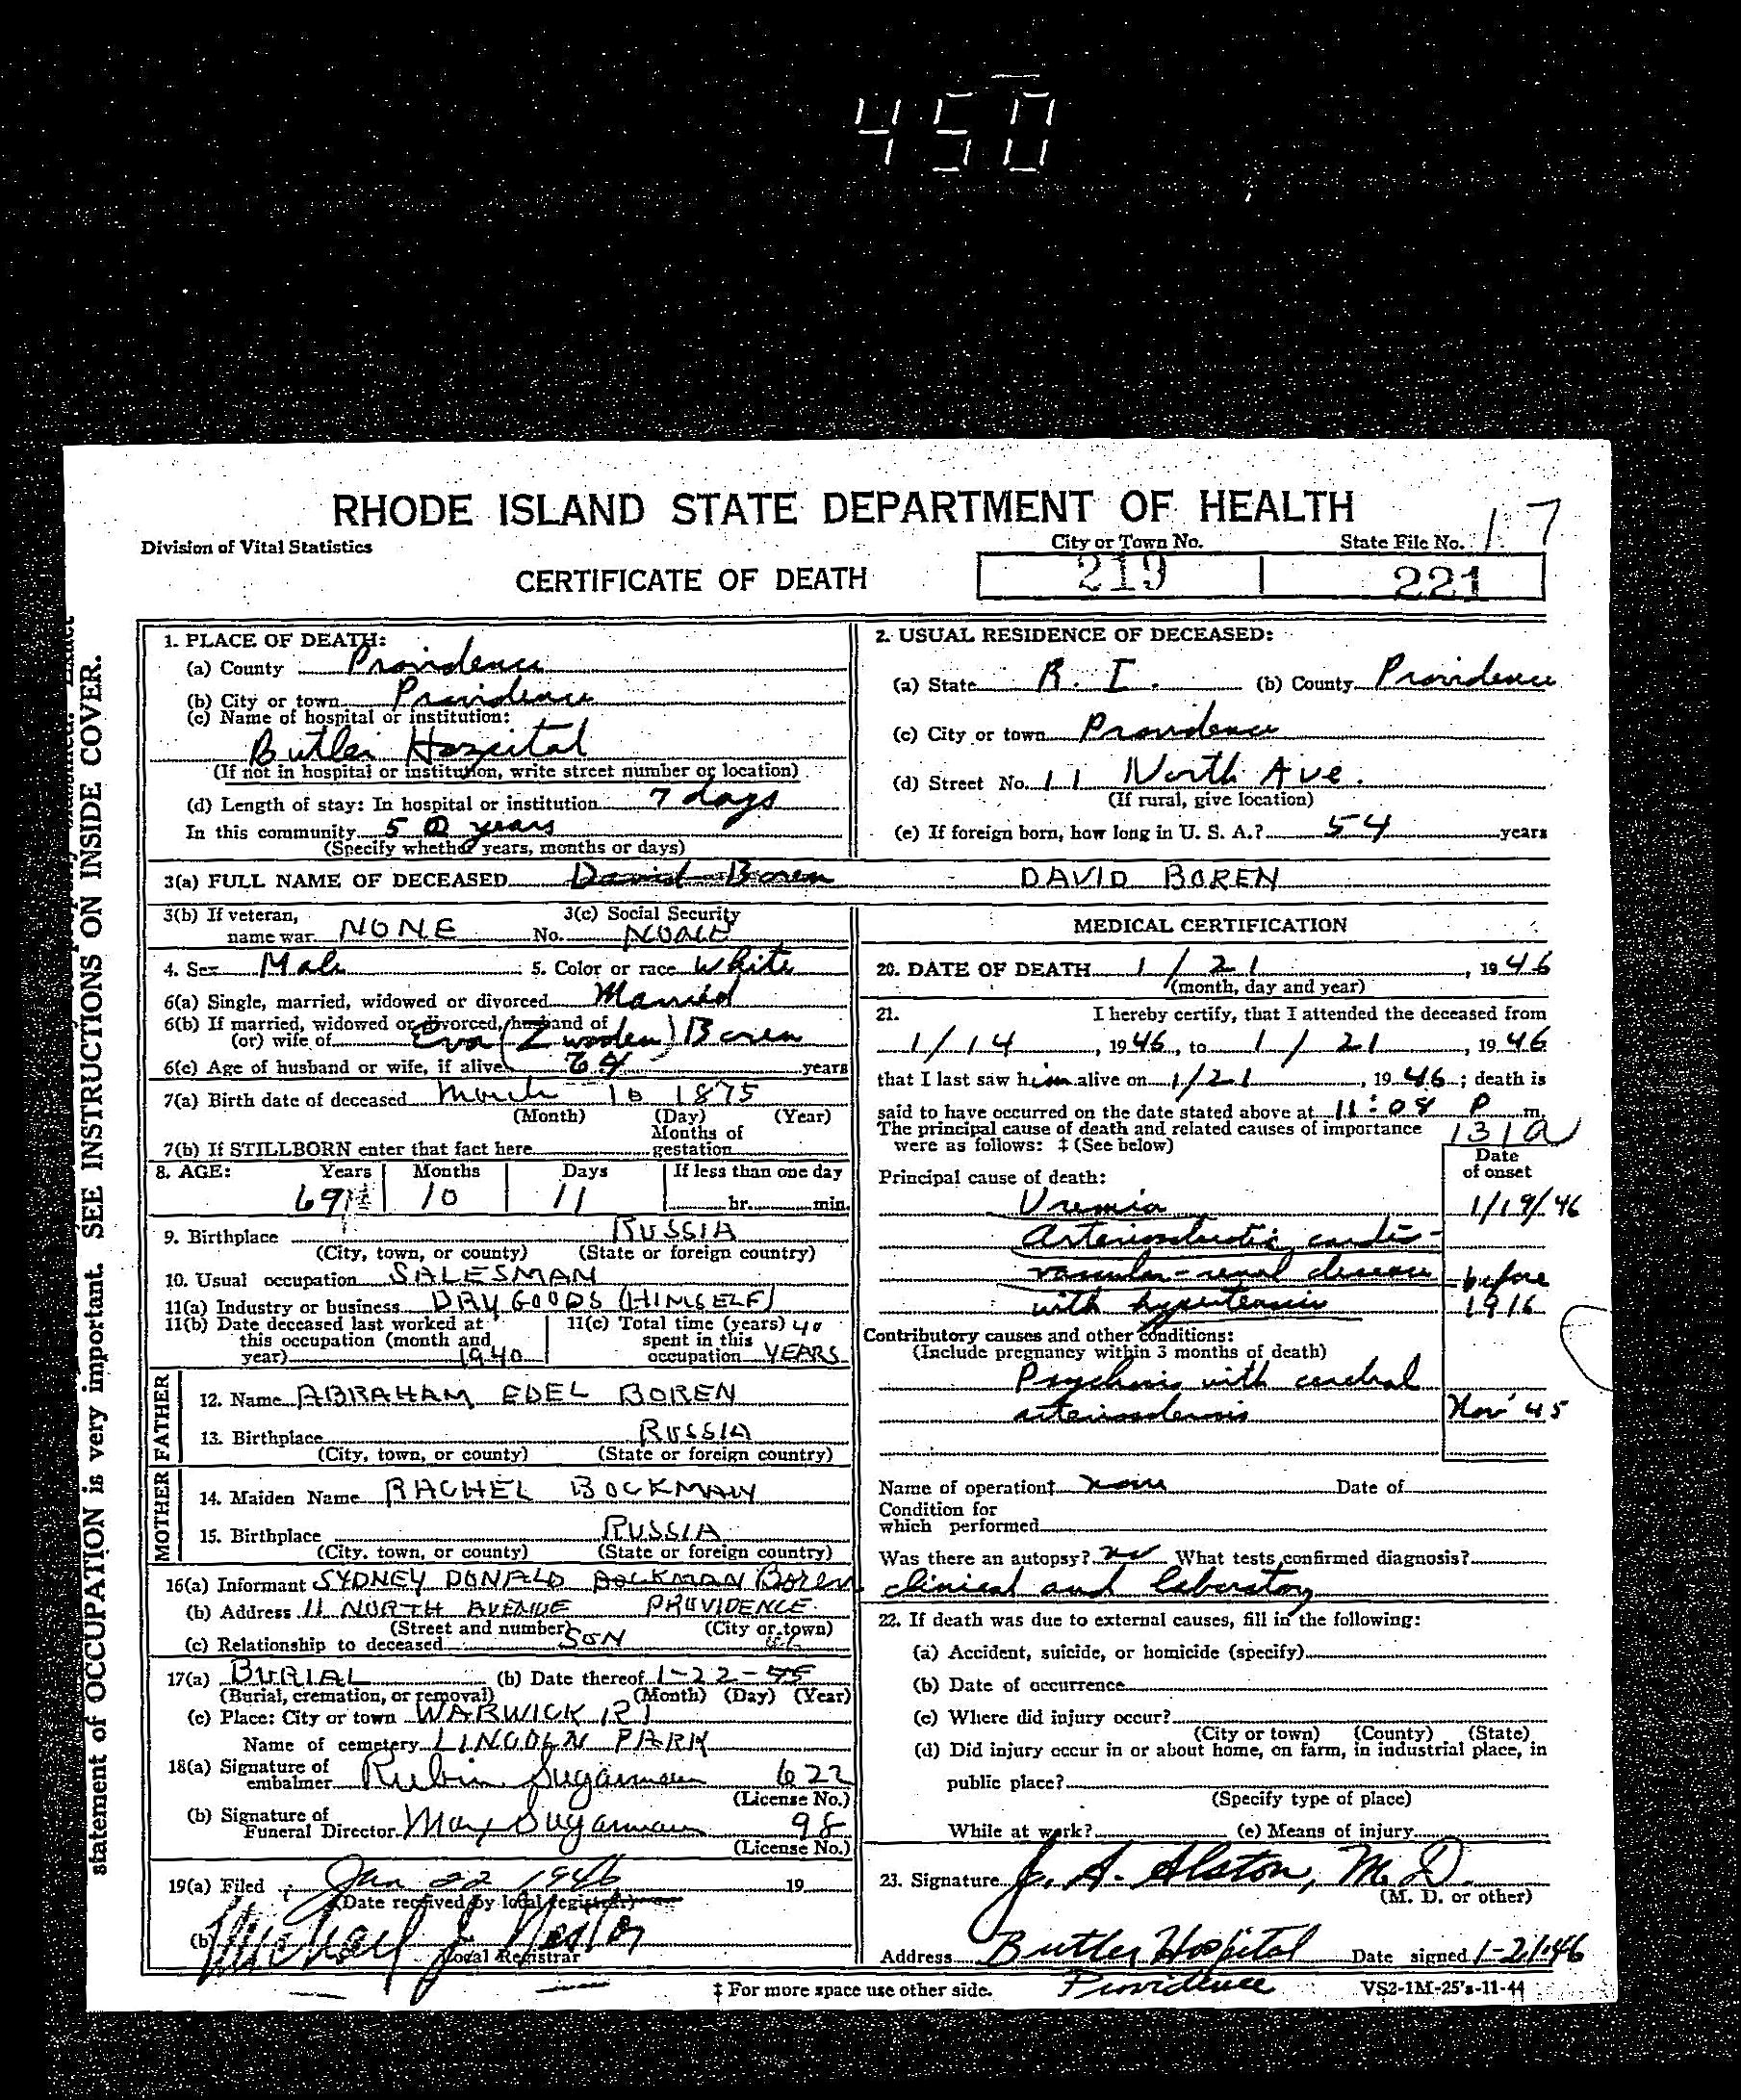 450
RHODE ISLAND STATE DEPARTMENT OF HEALTH
17
Division of Vital Statistics
City or Town No.
State File No.
CERTIFICATE OF DEATH
219
221
statement of OCCUPATION is very important. SEE INSTRUCTIONS ON INSIDE COVER.
1. PLACE OF DEATH:
(a) County Providence
(b) City or town Providence
(c) Name of hospital or institution:
Butler Hospital
(If not in hospital or institution, write street number or location)
(d) Length of stay: In hospital or institution 7 days
In this community 50 years
(Specify whether years, months or days)
2. USUAL RESIDENCE OF DECEASED:
(a) State R. I. (b) County Providence
(c) City or town Providence
(d) Street No. 11 North Ave.
(If rural, give location)
(e) If foreign born, how long in U. S. A.? 54 years
3(a) FULL NAME OF DECEASED David Boren DAVID BOREN
3(b) If veteran, name war NONE
3(c) Social Security No. NONE
4. Sex Male 5. Color or race White
6(a) Single, married, widowed or divorced Married
6(b) If married, widowed or divorced, husband of
(or) wife of Eva ( ) Boren
6(c) Age of husband or wife, if alive years
7(a) Birth date of deceased March 10 1875
(Month) (Day) (Year)
7(b) If STILLBORN enter that fact here Months of gestation
8. AGE: Years Months Days If less than one day
69 10 11 hr. min.
9. Birthplace RUSSIA
(City, town, or county) (State or foreign country)
10. Usual occupation SALESMAN
11(a) Industry or business DRY GOODS (HIMSELF)
11(b) Date deceased last worked at this occupation (month and year) 1940
11(c) Total time (years) spent in this occupation 40 YEARS
FATHER
12. Name ABRAHAM EDEL BOREN
13. Birthplace RUSSIA
(City, town, or county) (State or foreign country)
MOTHER
14. Maiden Name RACHEL BOCKMAN
15. Birthplace RUSSIA
(City, town, or county) (State or foreign country)
16(a) Informant SYDNEY DONALD BOCKMAN Boren
(b) Address 11 NORTH AVENUE PROVIDENCE
(Street and number) (City or town)
(c) Relationship to deceased SON
17(a) BURIAL (b) Date thereof 1-22-45
(Burial, cremation, or removal) (Month) (Day) (Year)
(c) Place: City or town WARWICK RI
Name of cemetery LINCOLN PARK
18(a) Signature of embalmer Rubin Sugarman 622
(License No.)
(b) Signature of Funeral Director Max Sugarman 98
(License No.)
19(a) Filed Jan 22 1946 19
(Date received by local registrar)
(b) Michael J. Nestor
Local Registrar
MEDICAL CERTIFICATION
20. DATE OF DEATH 1/21, 1946
(month, day and year)
21. I hereby certify, that I attended the deceased from
1/14, 1946, to 1/21, 1946
that I last saw him alive on 1/21, 1946; death is
said to have occurred on the date stated above at 11:08 P m.
The principal cause of death and related causes of importance
were as follows: ‡ (See below)
131a
Date of onset
Principal cause of death:
Uremia 1/19/46
Arteriosclerotic cardio-
vascular-renal disease before
with hypertension 1916
Contributory causes and other conditions:
(Include pregnancy within 3 months of death)
Psychosis with cerebral
arteriosclerosis Nov '45
Name of operation‡ none Date of
Condition for
which performed
Was there an autopsy? no What tests confirmed diagnosis?
clinical and laboratory
22. If death was due to external causes, fill in the following:
(a) Accident, suicide, or homicide (specify)
(b) Date of occurrence
(c) Where did injury occur?
(City or town) (County) (State)
(d) Did injury occur in or about home, on farm, in industrial place, in
public place?
(Specify type of place)
While at work? (e) Means of injury
23. Signature J. A. Alston, M. D.
(M. D. or other)
Address Butler Hospital Date signed 1-21-46
Providence
‡ For more space use other side.
VS2-1M-25's-11-44